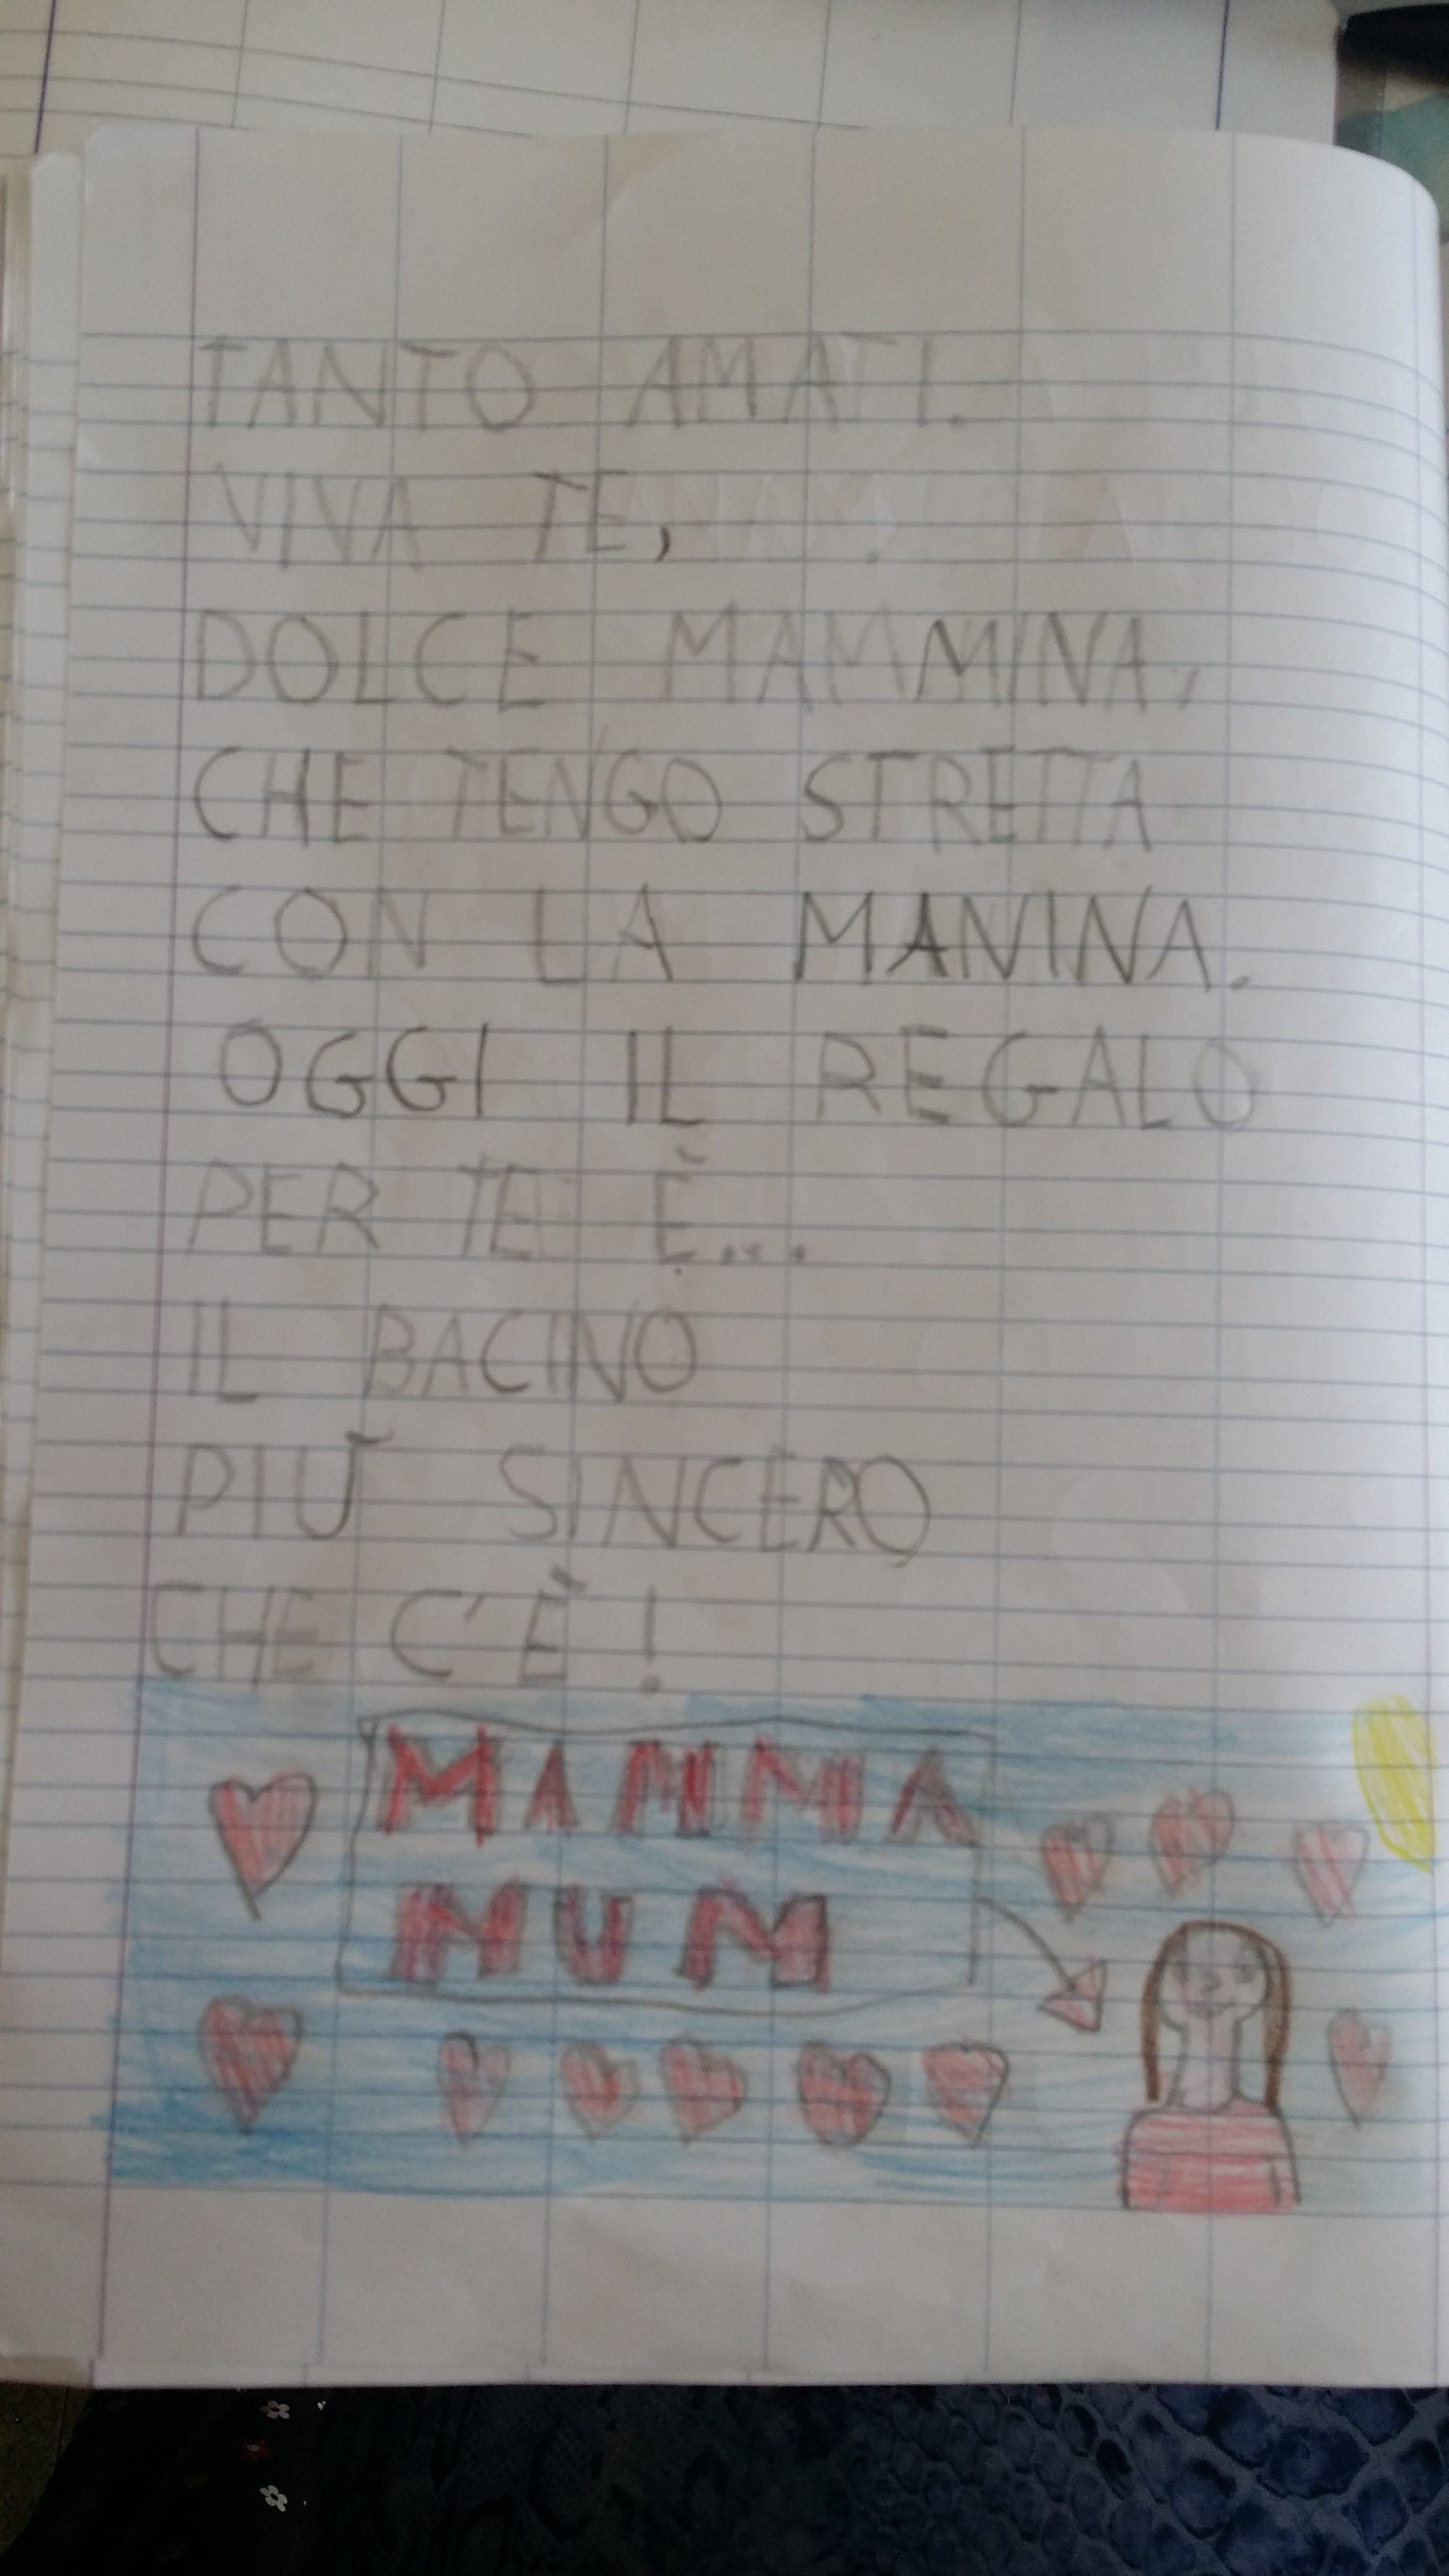 TANTO AMATI.
VIVA TE,
DOLCE MAMMINA,
CHE TENGO STRETTA
CON LA MANINA.
OGGI IL REGALO
PER TE È...
IL BACINO
PIÙ SINCERO
CHE C'È!
MAMMA
MUM